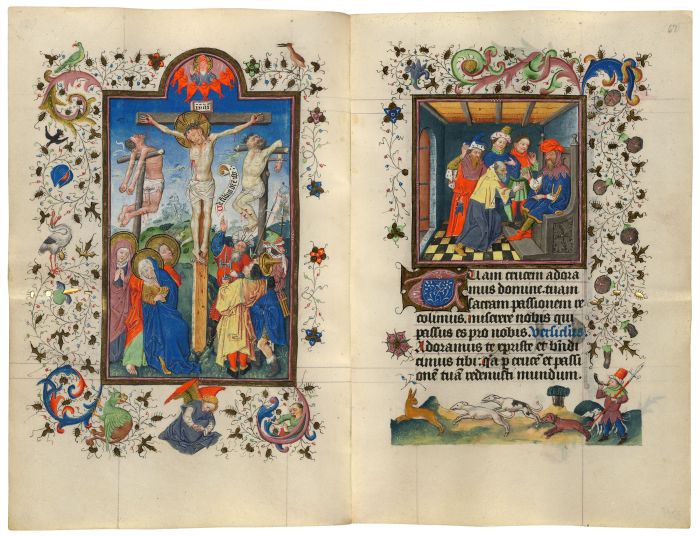 Tuam crucem adora
mus domine. tuam
sacram passionem re
colimus. miserere nobis qui
passus es pro nobis. Versiculus
Adoramus te xpriste et bndi
cimus tibi. q̄a p̱ crucē et passi
onē tuā redemisti mundum.